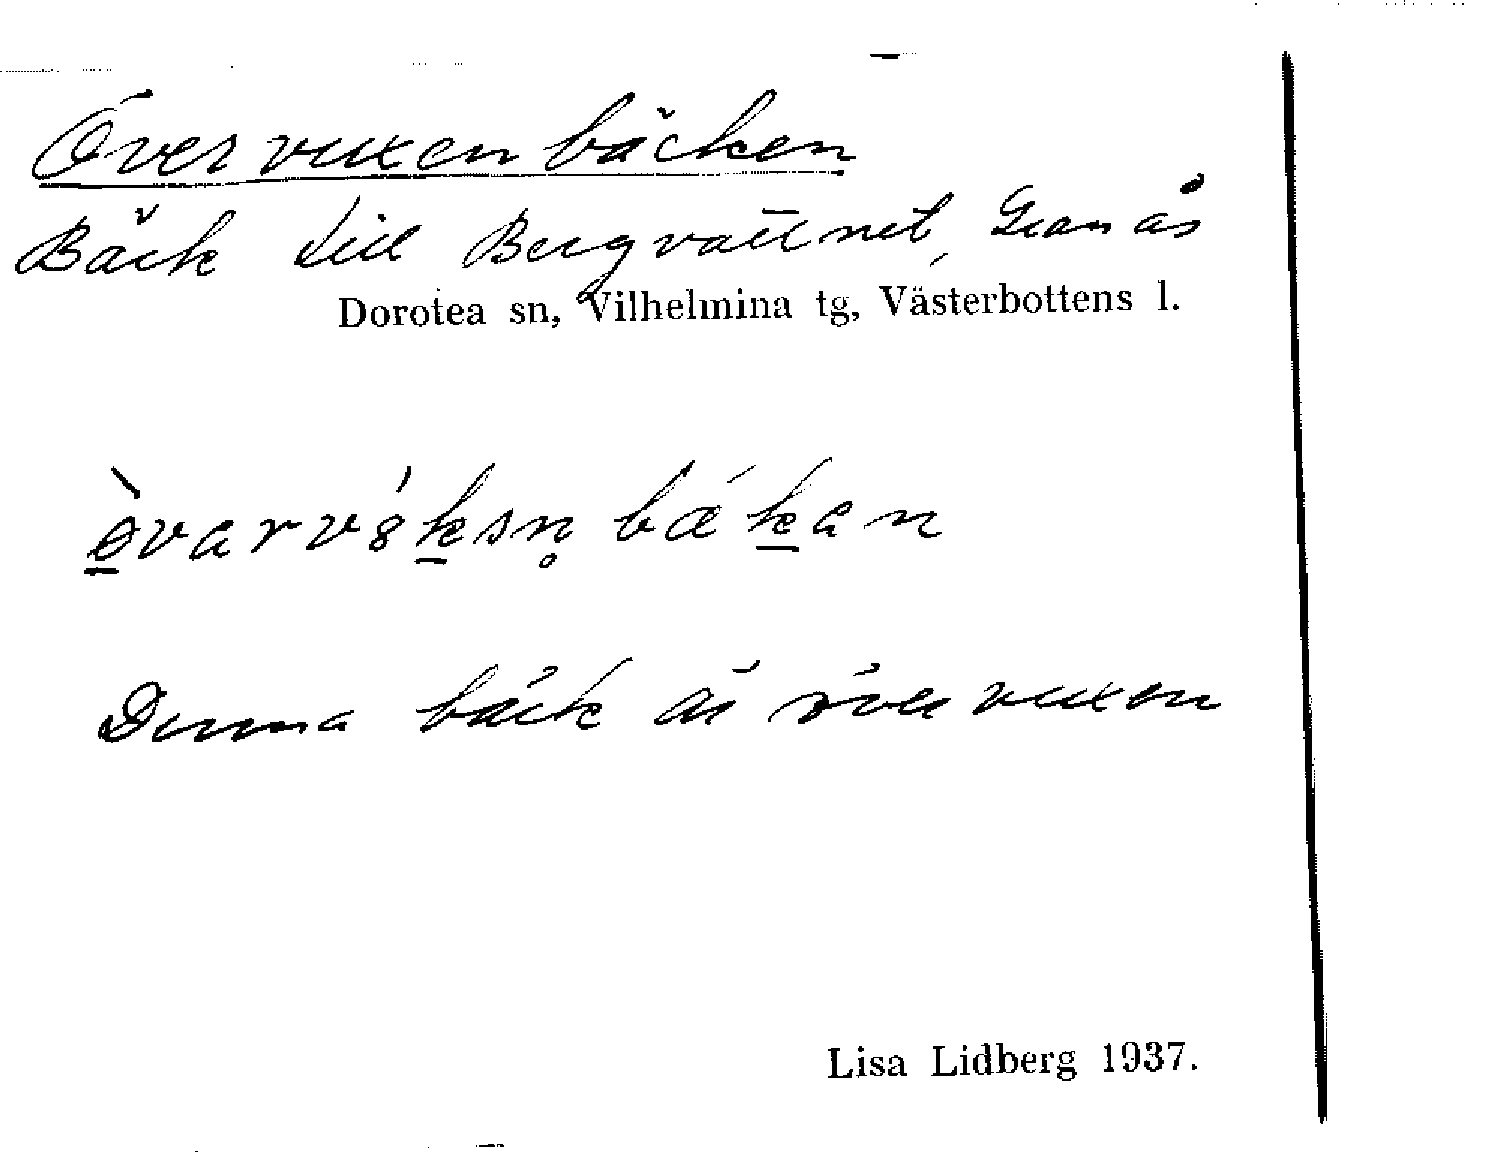 Övervuxenbäcken
Bäck till Bergvattnet, Granås
Dorotea sn, Vilhelmina tg, Västerbottens l.
ɵ̱̀varvȣ́ḵsn̥ bǽḵan
Denna bäck är övervuxen
Lisa Lidberg 1937.